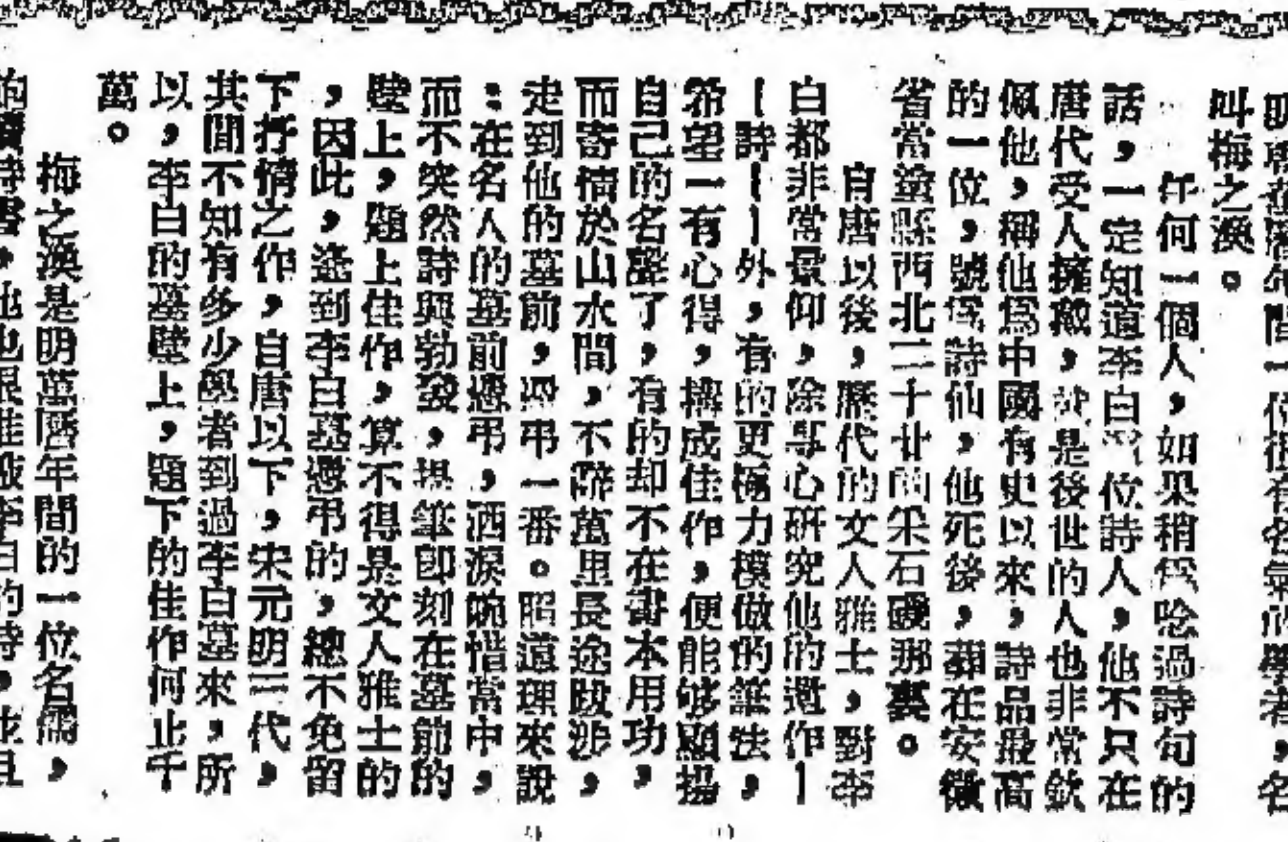 明萬曆年間一個很有名氣的學者,名
叫梅之渙。
任何一個人,如果稍為唸過詩句的
話,一定知道李白這位詩人,他不只在
唐代受人擁戴,就是後世的人也非常欽
佩他,稱他為中國有史以來,詩品最高
的一位,號為詩仙,他死後,葬在安徽
省當塗縣西北二十廿的采石磯那裏。
自唐以後,歷代的文人雅士,對李
白都非常景仰,除專心研究他的遺作—
—詩——外,有的更極力模倣的筆法,
希望一有心得,構成佳作,便能够顯揚
自己的名聲了,有的却不在書本用功,
而寄情於山水間,不辭萬里長途跋涉,
走到他的墓前,憑弔一番。照道理來說
:在名人的墓前憑弔,洒淚惋惜當中,
而不突然詩興勃發,提筆卽刻在墓前的
壁上,題上佳作,算不得是文人雅士的
,因此,逢到李白墓憑弔的,總不免留
下抒情之作,自唐以下,宋元明三代,
其間不知有多少學者到過李白墓來,所
以,李白的墓壁上,題下的佳作何止千
萬。
梅之渙是明萬曆年間的一位名儒,
的讀詩書,他也很推敬李白的詩,並且